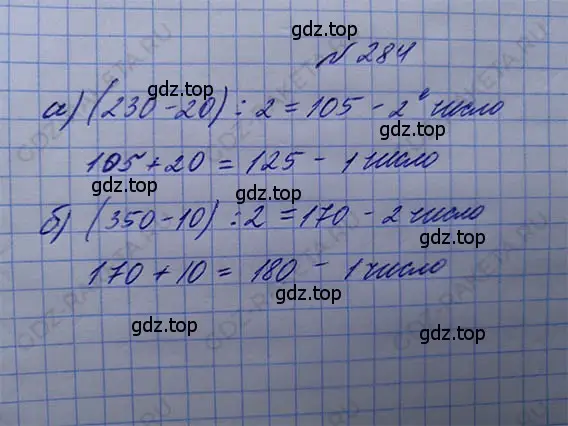 № 284
а) (230 - 20) : 2 = 105 - 2е число
105 + 20 = 125 - 1 число
б) (350 - 10) : 2 = 170 - 2 число
170 + 10 = 180 - 1 число
gdz.top
gdz.top
gdz.top
gdz.top
gdz.top
gdz.top
gdz.top
gdz.top
GDZ-RAKETA.RU
GDZ-RAKETA.RU
GDZ-RAKETA.RU